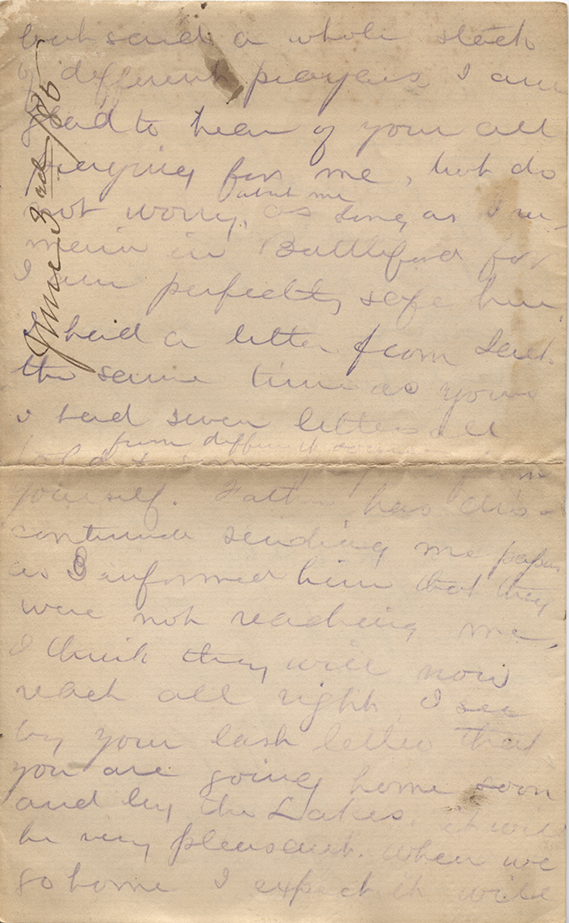 but said a whole stack
of different prayers I am
glad to hear of your all
praying for me, but do
not worry, about me as long as I re-
main in Battleford for
I am perfectly safe here
I had a letter from Jack
the same time as yours
I had seven letters all
told from different
yourself. Father has dis-
continued sending me papers
as I informed him that they
were not reaching me,
I think they will now
reach all right, I see
by your last letter that
you are going home soon
and by the Lakes. it will
be very pleasant. when we
go home I expect it will
June 3rd/85